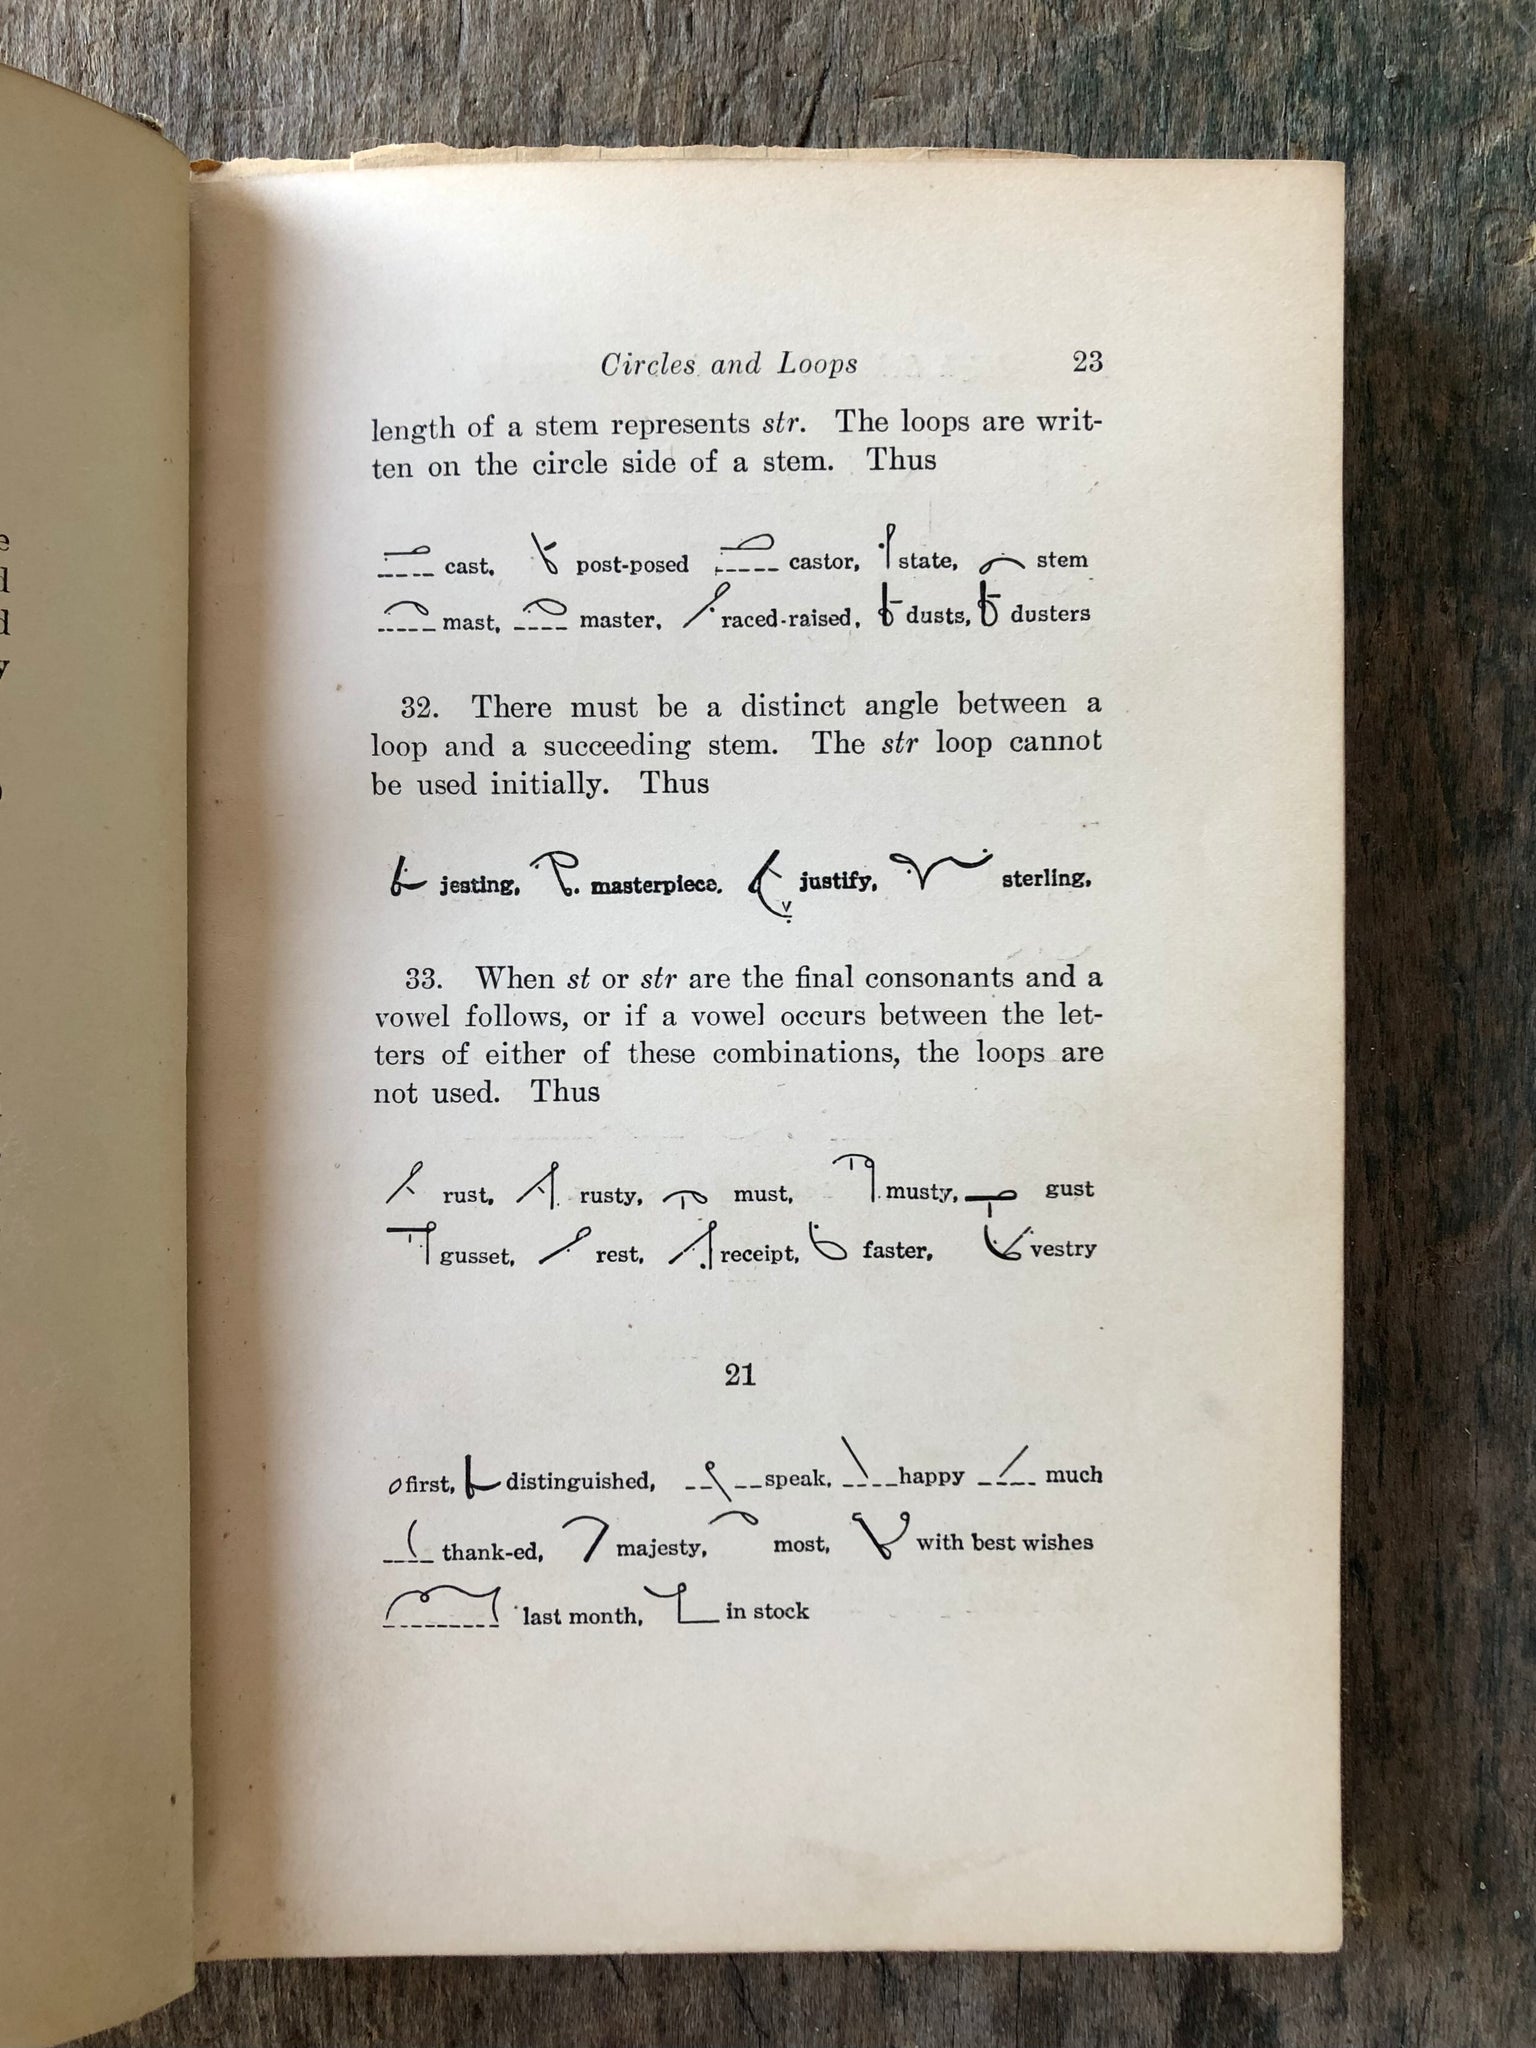 Circles and Loops 23
length of a stem represents str. The loops are writ-
ten on the circle side of a stem. Thus
cast, post-posed castor, state, stem
mast, master, raced-raised, dusts, dusters
32. There must be a distinct angle between a
loop and a succeeding stem. The str loop cannot
be used initially. Thus
jesting, masterpiece. justify, sterling,
33. When st or str are the final consonants and a
vowel follows, or if a vowel occurs between the let-
ters of either of these combinations, the loops are
not used. Thus
rust, rusty, must, musty, gust
gusset, rest, receipt, faster, vestry
21
first, distinguished, speak, happy much
thank-ed, majesty, most, with best wishes
last month, in stock